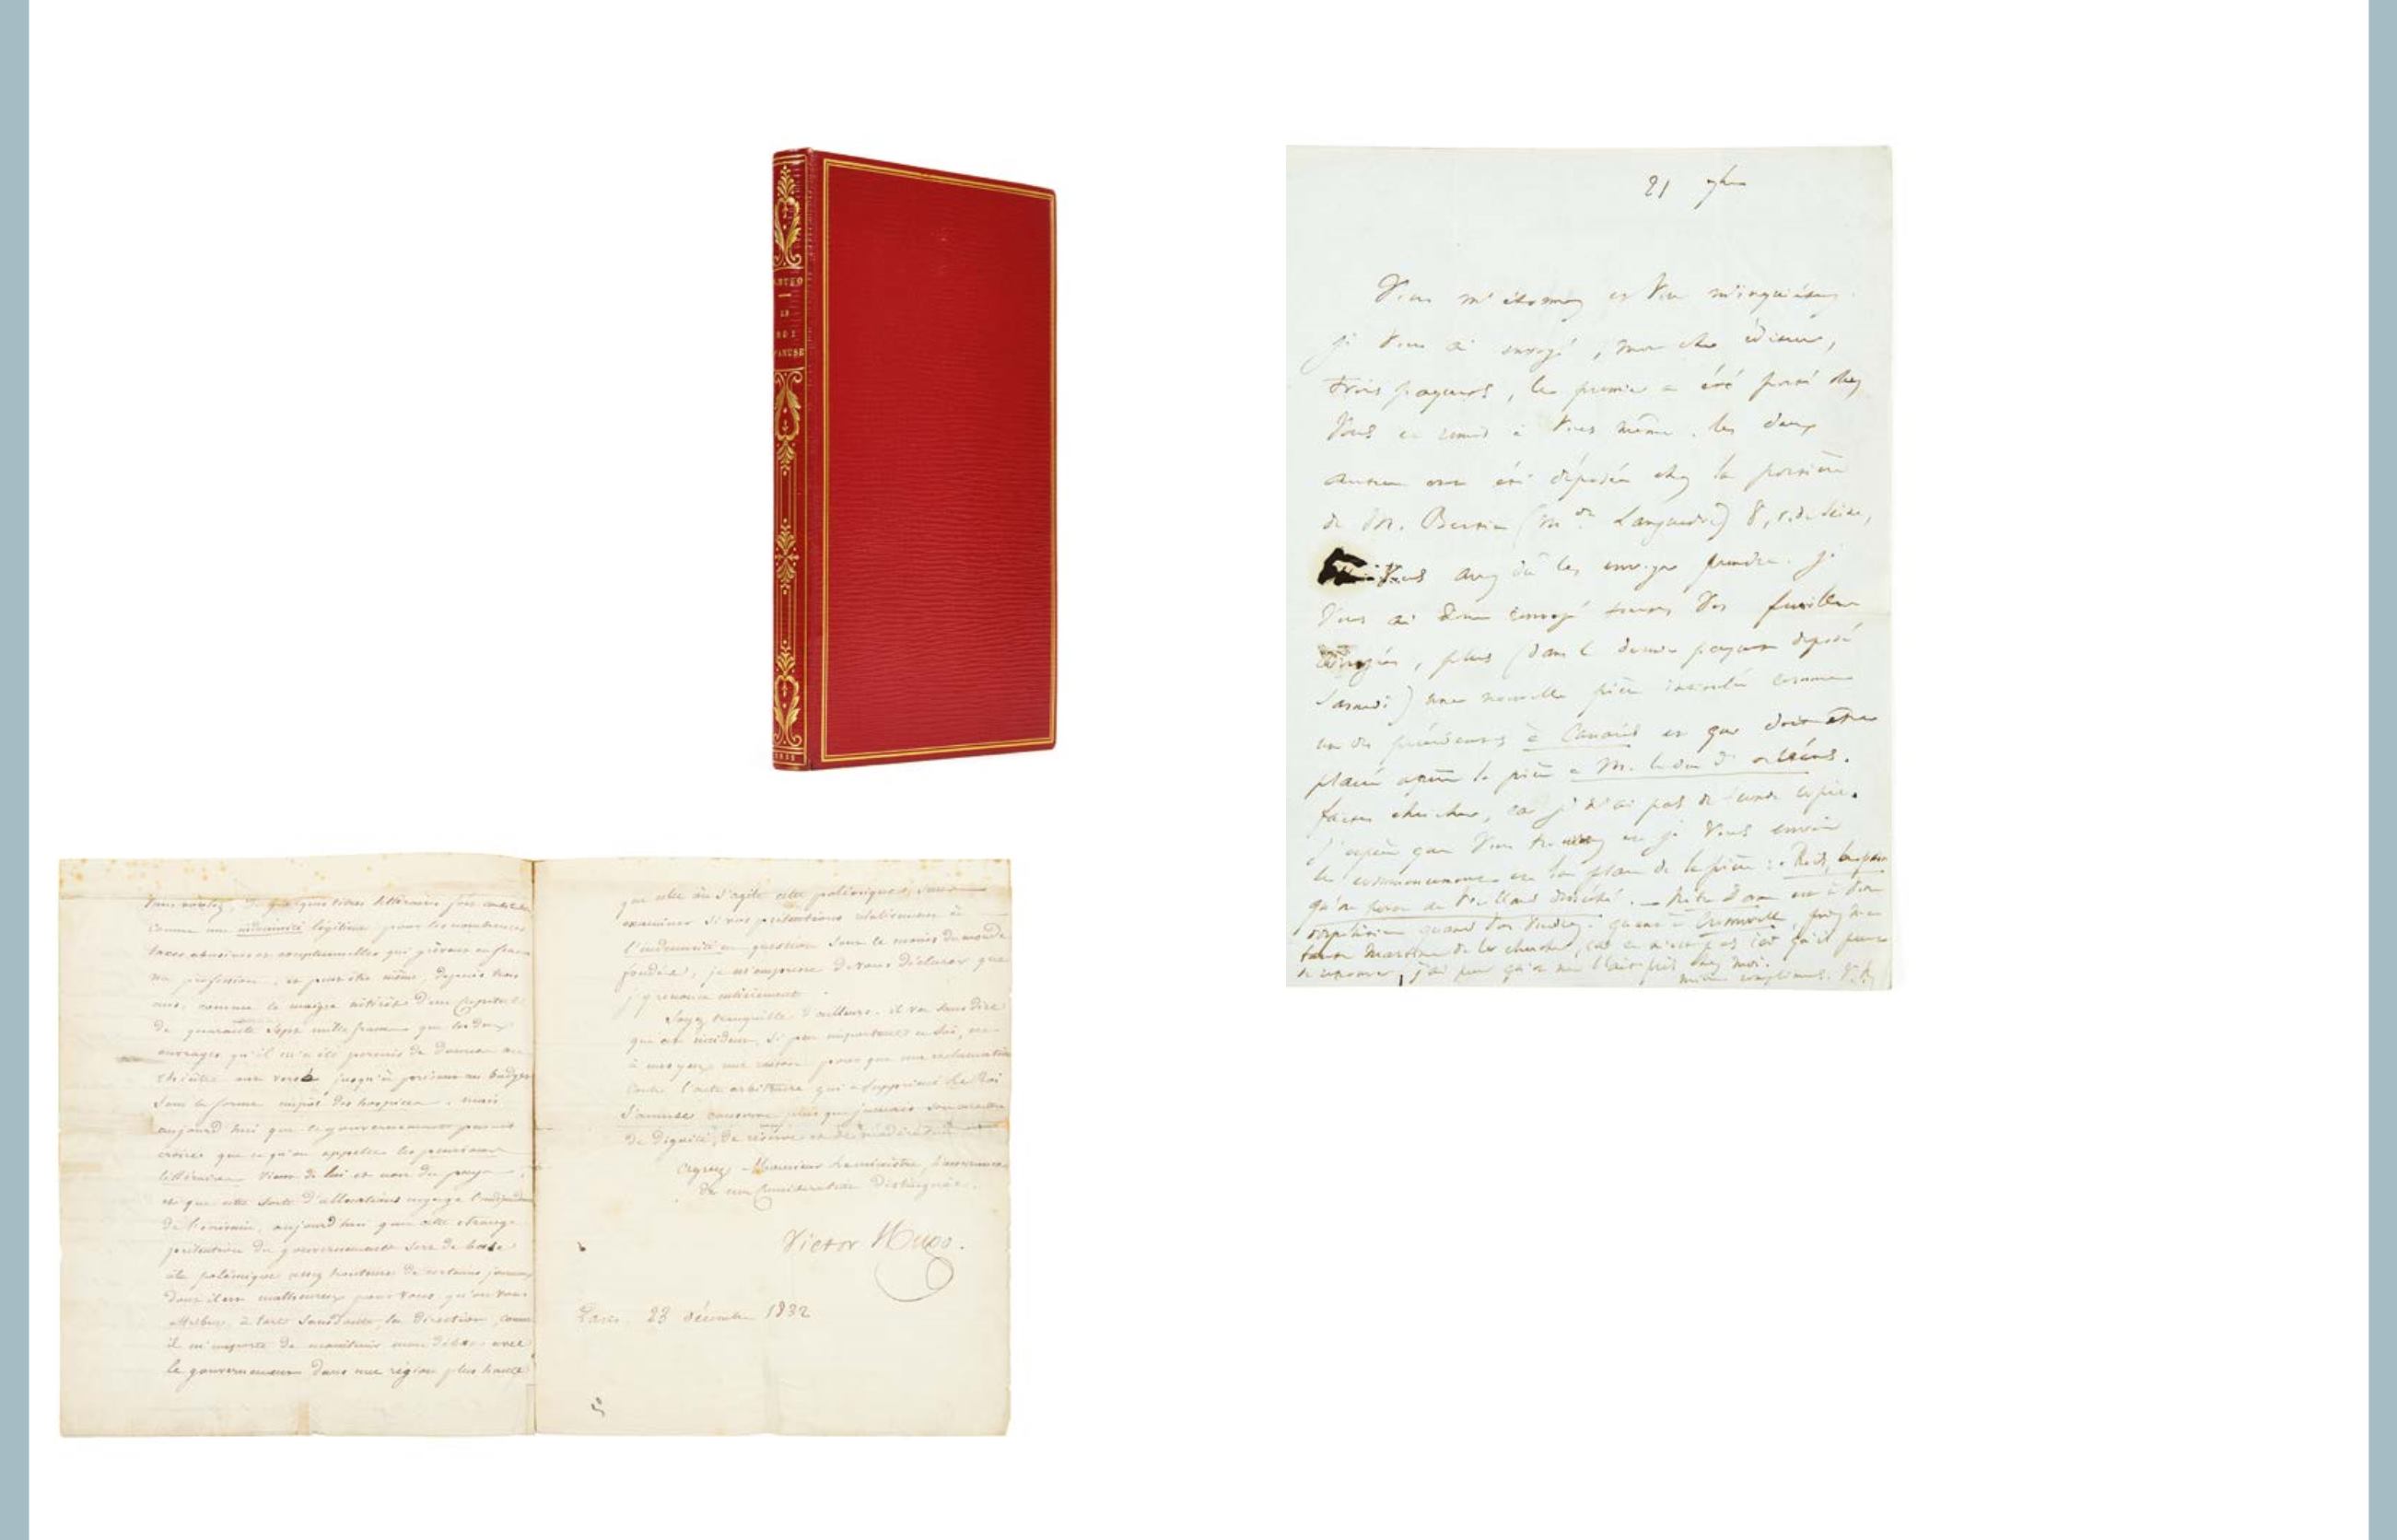 HUGO
LE
ROI
S'AMUSE
1832
21 9bre
Vous m'étonnez et vous m'inquiétez.
je vous ai envoyé, mon cher éditeur,
trois paquets, le premier a été porté chez
vous et remis à vous même. les deux
autres ont été déposés chez la portière
de M. 8, r. de Seine,
vous avez dû les envoyer prendre. je
vous ai donc envoyé toutes vos feuilles
corrigées, plus (dans le dernier paquet déposé
samedi) une nouvelle pièce intitulée comme
une des précédentes à Canaris et qui doit être
placée après la pièce à M. le duc d'orléans.
faites chercher, car je n'ai pas de seconde copie.
j'espère que vous trouverez je vous envoie
le commencement et la place de la pièce :
mille compliments. V. H.
vous voulez, de quelques titres littéraires
comme une indemnité légitime pour les nombreuses
taxes abusives et exceptionnelles qui grèvent en france
ma profession, et peut-être même, depuis trois
ans, comme le maigre intérêt d'un capital
de quarante sept mille francs que les deux
ouvrages qu'il m'a été permis de donner au
théâtre ont versé jusqu'à présent au budget
sous la forme impôt des hospices. mais
aujourd'hui que le gouvernement paraît
croire que ce qu'on appelle les pensions
littéraires vient de lui et non du pays,
et que cette sorte d'allocations engage l'indépendance
de l'écrivain, aujourd'hui que cette étrange
prétention du gouvernement sert de base
à la polémique assez honteuse de certains journaux
dont il est malheureux pour vous qu'on vous
attribue, à tort sans doute, la direction, comme
il m'importe de maintenir mon débat avec
le gouvernement dans une région plus haute
que celle où s'agite cette polémique, sans
examiner si vos prétentions relativement à
l'indemnité en question sont le moins du monde
fondées, je m'empresse de vous déclarer que
j'y renonce entièrement.
Soyez tranquille d'ailleurs. il va sans dire
que cet incident, si peu important en soi, est
à mes yeux une raison pour que ma réclamation
contre l'acte arbitraire qui a supprimé Le Roi
s'amuse conserve plus que jamais son caractère
de dignité, de réserve et de modération.
Agréez, Monsieur le ministre, l'assurance
de ma considération distinguée.
Victor Hugo.
Paris. 23 décembre 1832